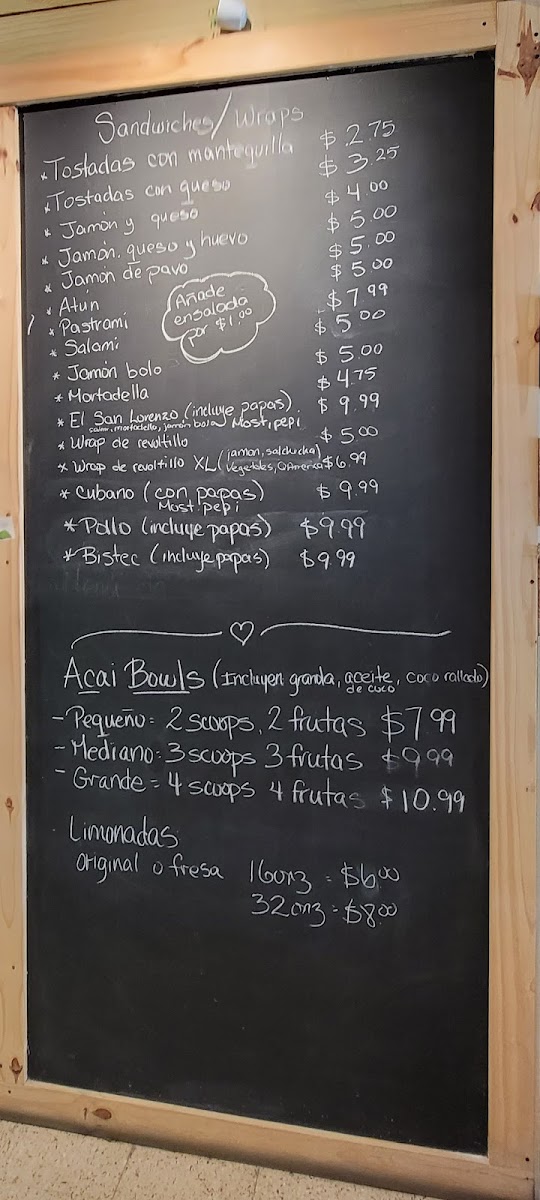 Sandwiches/Wraps
* Tostadas con mantequilla $2.75
* Tostadas con queso $3.25
* Jamón y queso $4.00
* Jamón. queso y huevo $5.00
* Jamón de pavo $5.00
* Atún $5.00
* Pastrami $7.99
* Salami $5.00
Añade
ensalada
por $1.00
* Jamón bolo $5.00
* Mortadella $4.75
* El San Lorenzo (incluye papas) $9.99
salmi, mortadella, jamón bolo Most, pepi
* Wrap de revoltillo $5.00
* Wrap de revoltillo XL (jamon, salchicha) $6.99
vegetales, QAmerica
* Cubano (con papas) $9.99
Most. pepi
* Pollo (incluye papas) $9.99
* Bistec (incluye papas) $9.99
Acai Bowls (Incluyen granola, aceite, coco rallado)
de coco
- Pequeño = 2 scoops, 2 frutas $7.99
- Mediano = 3 scoops 3 frutas $9.99
- Grande = 4 scoops 4 frutas $10.99
Limonadas
original o fresa 16onz = $6.00
32onz = $8.00